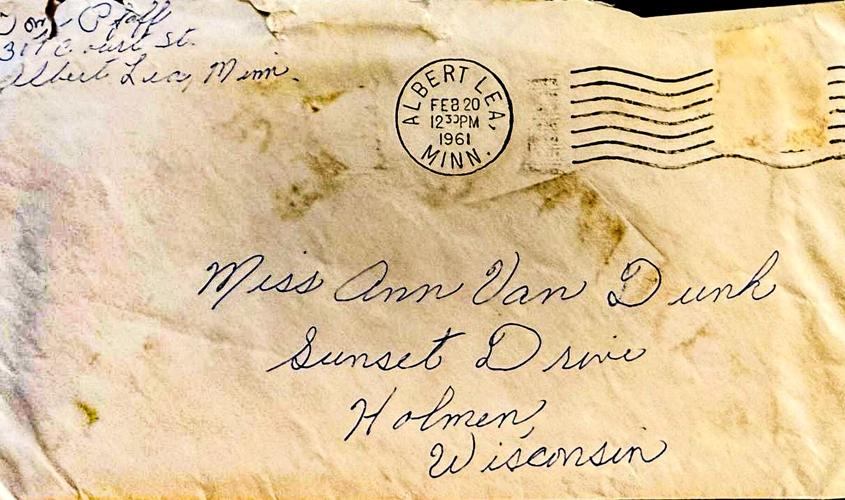 Pfaff
317 Court St.
Albert Lea, Minn.
ALBERT LEA,
FEB 20
12 30 PM
1961
MINN.
Miss Ann Van Dunk
Sunset Drive
Holmen,
Wisconsin